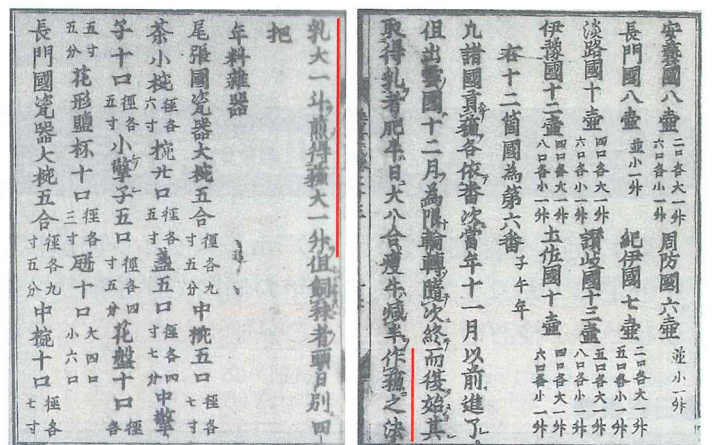 安藝國八壷二口各大一升六口各小一升周防國六壷並小一升
長門國八壷並小一升紀伊國七壷二口各大一升五口各小一升
淡路國十壷四口各大一升六口各小一升讃岐國十三壷五口各大一升八口各小一升
伊豫國十二壷四口各大一升八口各小一升土佐國十壷四口各大一升六口各小一升
右十二箇國為第六番子午年
凡諸國貢蘓各依番次當年十一月以前進了
但出雲國十二月為限輪轉隨次終而復始其
取得乳者肥牛日大八合瘦牛減半作蘓之法
乳大一斗煎得蘓大一升但飼秣者頭日別四
把
年料雜器
尾張國瓷器大椀五合徑各九寸五分中椀五口徑各七寸
茶小椀徑各六寸椀廿口徑各五寸盞五口徑各四寸七分中擎
子十口徑各五寸小擎子五口徑各四寸五分花盤十口徑各
五寸五分花形鹽杯十口徑各三寸瓶十口大四口小六口
長門國瓷器大椀五合徑各九寸五分中椀十口徑各七寸